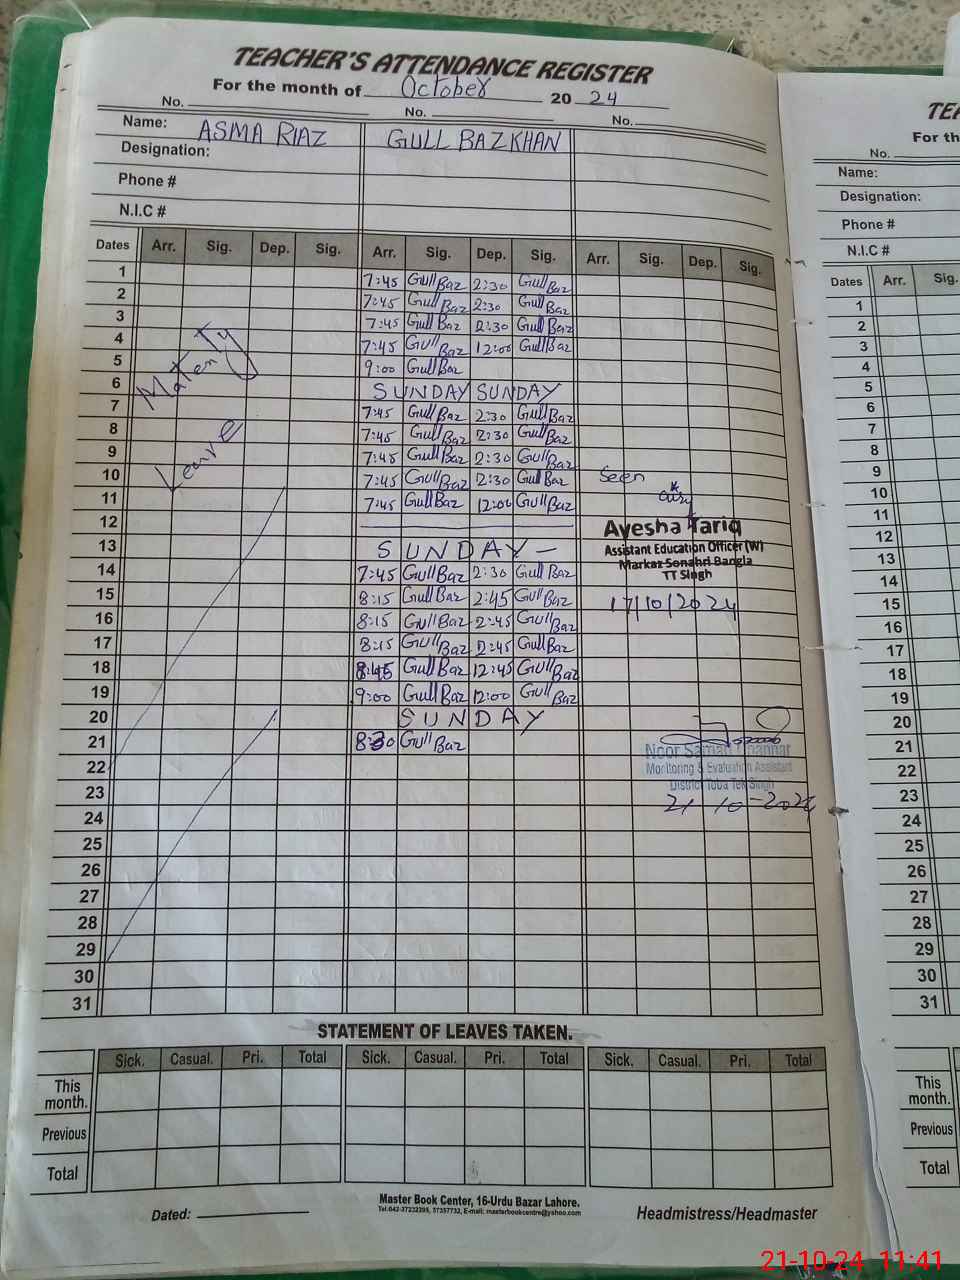 TEACHER'S ATTENDANCE REGISTER
For the month of October 2024
No. No. No.
Name: ASMA RIAZ GULL BAZ KHAN
Designation:
Phone #
N.I.C #
Dates Arr. Sig. Dep. Sig. Arr. Sig. Dep. Sig. Arr. Sig. Dep. Sig.
1 7:45 Gull Baz 2:30 Gull Baz
2 7:45 Gull Baz 2:30 Gull Baz
3 7:45 Gull Baz 2:30 Gull Baz
4 7:45 Gull Baz 12:00 Gull Baz
5 9:00 Gull Baz
6 SUNDAY SUNDAY
7 7:45 Gull Baz 2:30 Gull Baz
8 7:45 Gull Baz 2:30 Gull Baz
9 7:45 Gull Baz 2:30 Gull Baz
10 7:45 Gull Baz 2:30 Gull Baz
11 7:45 Gull Baz 12:00 Gull Baz
12
13 SUNDAY
14 7:45 Gull Baz 2:30 Gull Baz
15 8:15 Gull Baz 2:45 Gull Baz
16 8:15 Gull Baz 2:45 Gull Baz
17 8:15 Gull Baz 2:45 Gull Baz
18 8:45 Gull Baz 12:45 Gull Baz
19 9:00 Gull Baz 12:00 Gull Baz
20 SUNDAY
21 8:30 Gull Baz
22
23
24
25
26
27
28
29
30
31
Matenty
Leave
Seen
Ayesha Tariq
Assistant Education Officer (W)
Markaz Sonahri Bangla
TT Singh
17/10/2024
Noor Saman
Monitoring & Evaluation Assistant
District Toba Tek Singh
21-10-2024
STATEMENT OF LEAVES TAKEN.
Sick. Casual. Pri. Total Sick. Casual. Pri. Total Sick. Casual. Pri. Total
This month.
Previous
Total
Master Book Center, 16-Urdu Bazar Lahore.
Tel:042-37232395, 37357732, E-mail: masterbookcentre@yahoo.com
Dated:
Headmistress/Headmaster
TEA
For th
No.
Name:
Designation:
Phone #
N.I.C #
Dates Arr. Sig.
1
2
3
4
5
6
7
8
9
10
11
12
13
14
15
16
17
18
19
20
21
22
23
24
25
26
27
28
29
30
31
This month.
Previous
Total
21-10-24 11:41